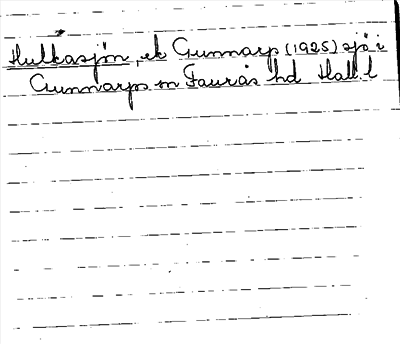 Hultasjön, ek Gunnarp (1925) sjö i
Gunnarps sn Faurås hd Hall. l